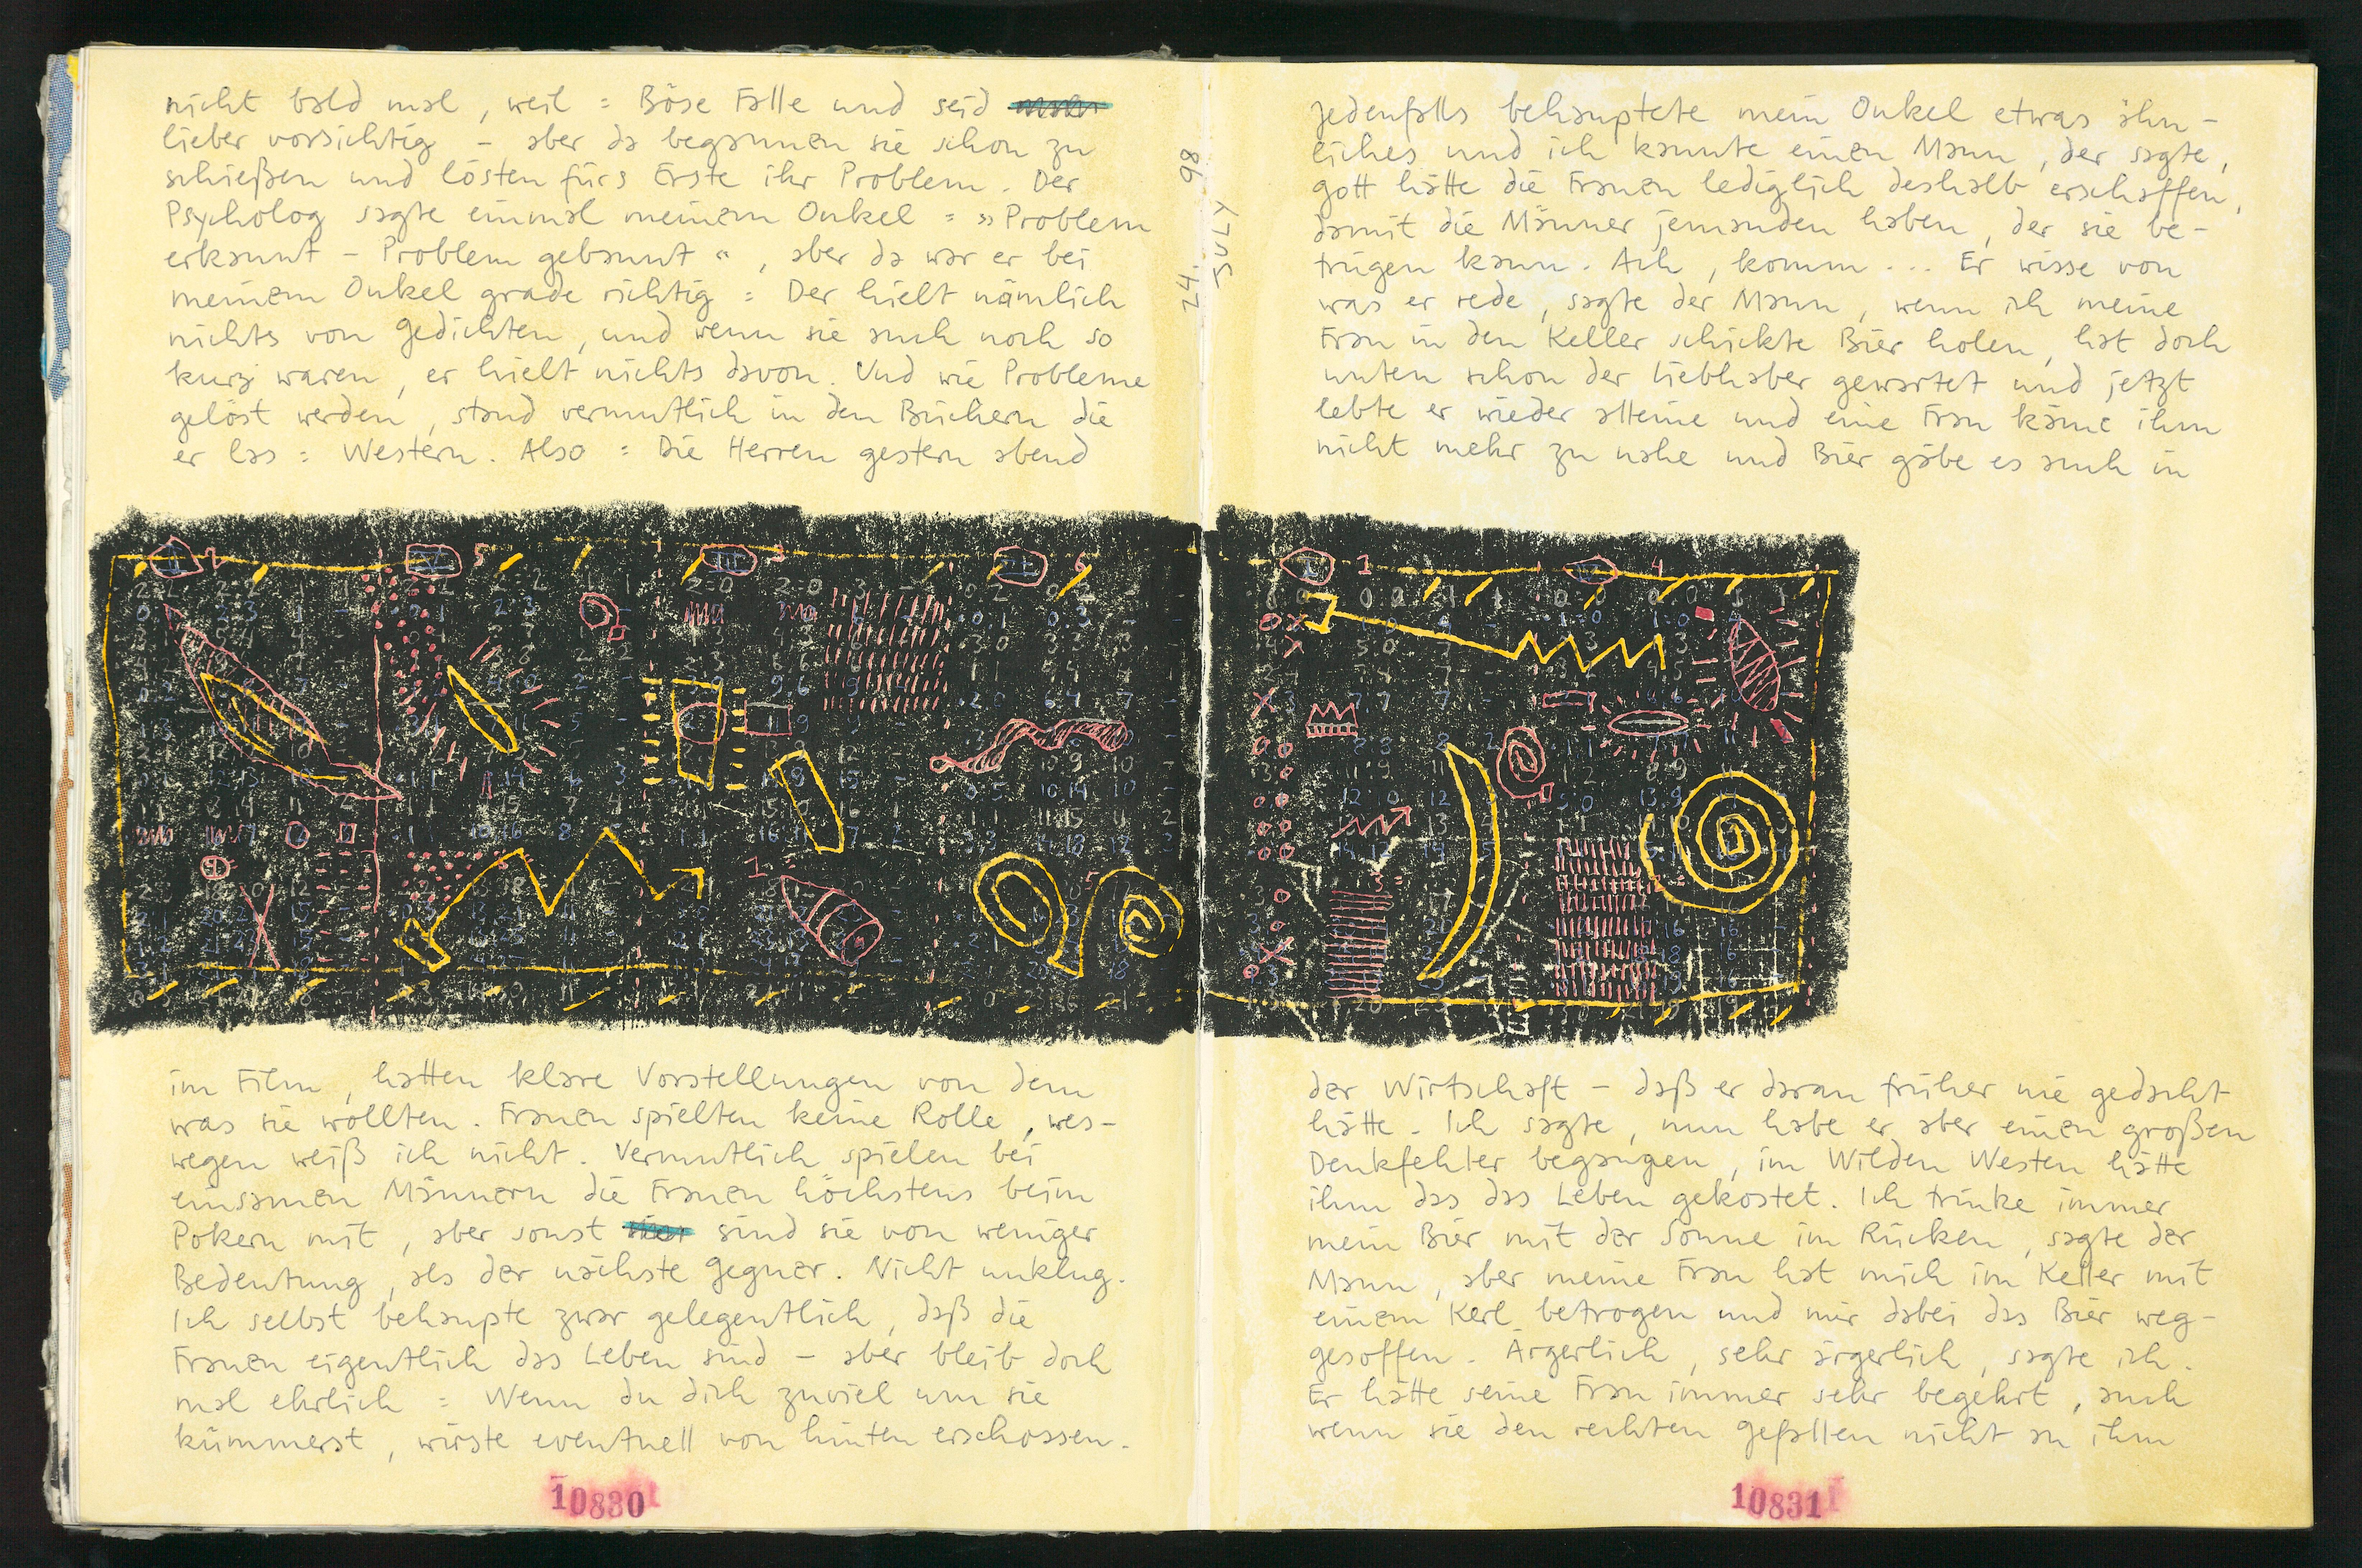 nicht bald mal, weil : Böse Falle und seid
lieber vorsichtig – aber da begannen sie schon zu
schießen und lösten fürs Erste ihr Problem. Der
Psycholog sagte einmal meinem Onkel : »Problem
erkannt – Problem gebannt«, aber da war er bei
meinem Onkel grade richtig : Der hielt nämlich
nichts von Gedichten, und wenn sie auch noch so
kurz waren, er hielt nichts davon. Und wie Probleme
gelöst werden, stand vermutlich in den Büchern die
er las : Western. Also : Die Herren gestern abend
im Film, hatten klare Vorstellungen von dem
was sie wollten. Frauen spielten keine Rolle, wes-
wegen weiß ich nicht. Vermutlich spielen bei
einsamen Männern die Frauen höchstens beim
Pokern mit, aber sonst sind sie von weniger
Bedeutung, als der nächste Gegner. Nicht unklug.
Ich selbst behaupte zwar gelegentlich, daß die
Frauen eigentlich das Leben sind – aber bleib doch
mal ehrlich : Wenn du dich zuviel um sie
kümmerst, wirste eventuell von hinten erschossen.
10830
24. JULY 98
Jedenfalls behauptete mein Onkel etwas ähn-
liches und ich kannte einen Mann, der sagte,
gott hätte die Frauen lediglich deshalb erschaffen,
damit die Männer jemanden haben, der sie be-
trügen kann. Ach, komm ... Er wisse von
was er rede, sagte der Mann, wenn ich meine
Frau in den Keller schickte Bier holen, hat doch
unten schon der Liebhaber gewartet und jetzt
lebte er wieder alleine und eine Frau käme ihm
nicht mehr zu nahe und Bier gäbe es auch in
der Wirtschaft – daß er daran früher nie gedacht
hätte. Ich sagte, nun habe er aber einen großen
Denkfehler begangen, im Wilden Westen hätte
ihm das das Leben gekostet. Ich trinke immer
mein Bier mit der Sonne im Rücken, sagte der
Mann, aber meine Frau hat mich im Keller mit
einem Kerl betrogen und mir dabei das Bier weg-
gesoffen. Ärgerlich, sehr ärgerlich, sagte ich.
Er hätte seine Frau immer sehr begehrt, auch
wenn sie den rechten Gefallen nicht an ihm
10831